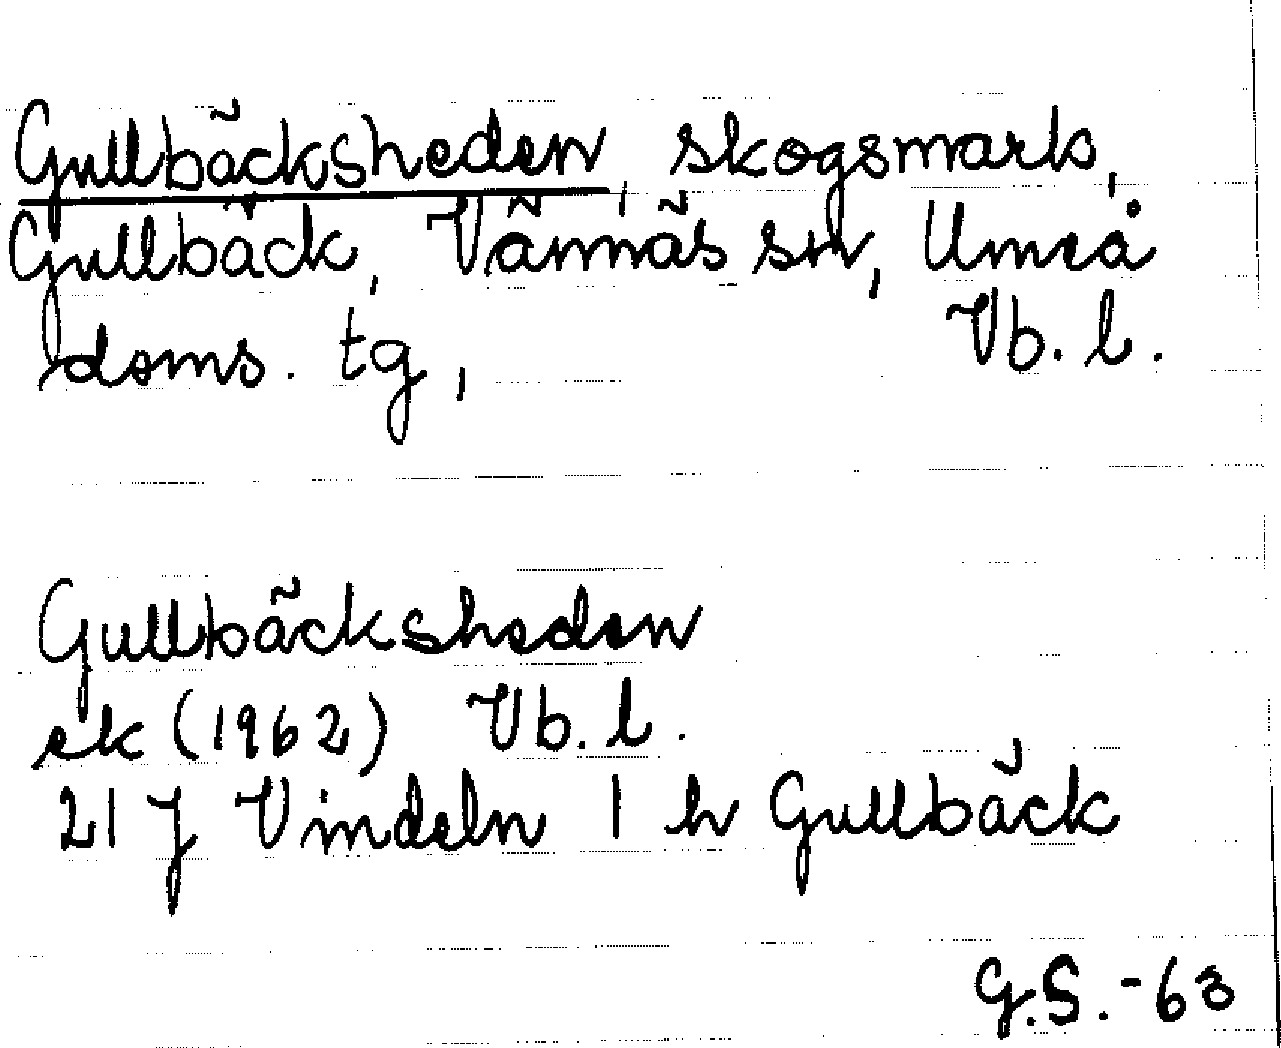 Gullbäcksheden, skogsmark,
Gullbäck, Vännäs sn, Umeå
doms. tg, Vb. l.
Gullbäcksheden
ek (1962) Vb. l.
21 J Vindeln 1 h Gullbäck
G.S. -63